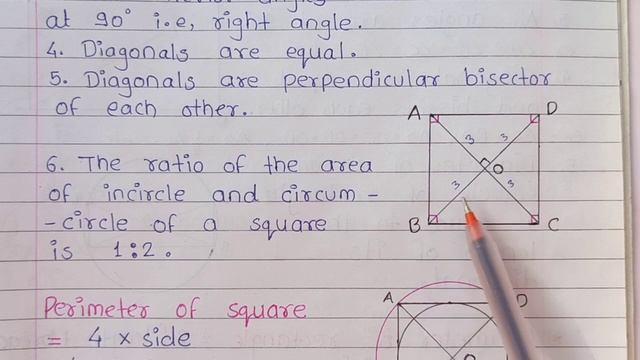 at 90° i.e, right angle.
4. Diagonals are equal.
5. Diagonals are perpendicular bisector
of each other.
A D
3 3
O
3 3
B C
6. The ratio of the area
of incircle and circum -
- circle of a square
is 1:2.
Perimeter of square
= 4 x side
A D
O